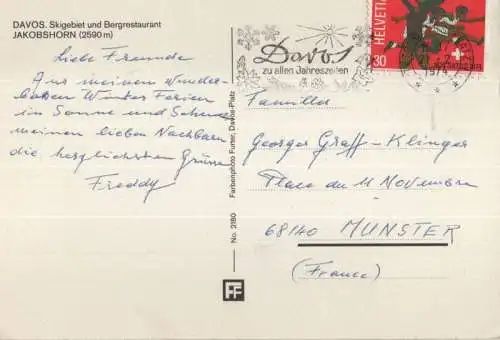 DAVOS. Skigebiet und Bergrestaurant
JAKOBSHORN (2590 m)
Liebe Freunde
Aus meinen wunder-
baren Winter Ferien
in Sonne und Schnee
meinen lieben Nachbarn
die herzlichsten Grüsse
Freddy
No. 2180 Farbenphoto Furter, Davos-Platz
FF
Davos
zu allen Jahreszeiten
HELVETIA
30
1974
Familla
Georges Graff-Klinger
Place du 11 Novembre
68140 MUNSTER
(France)